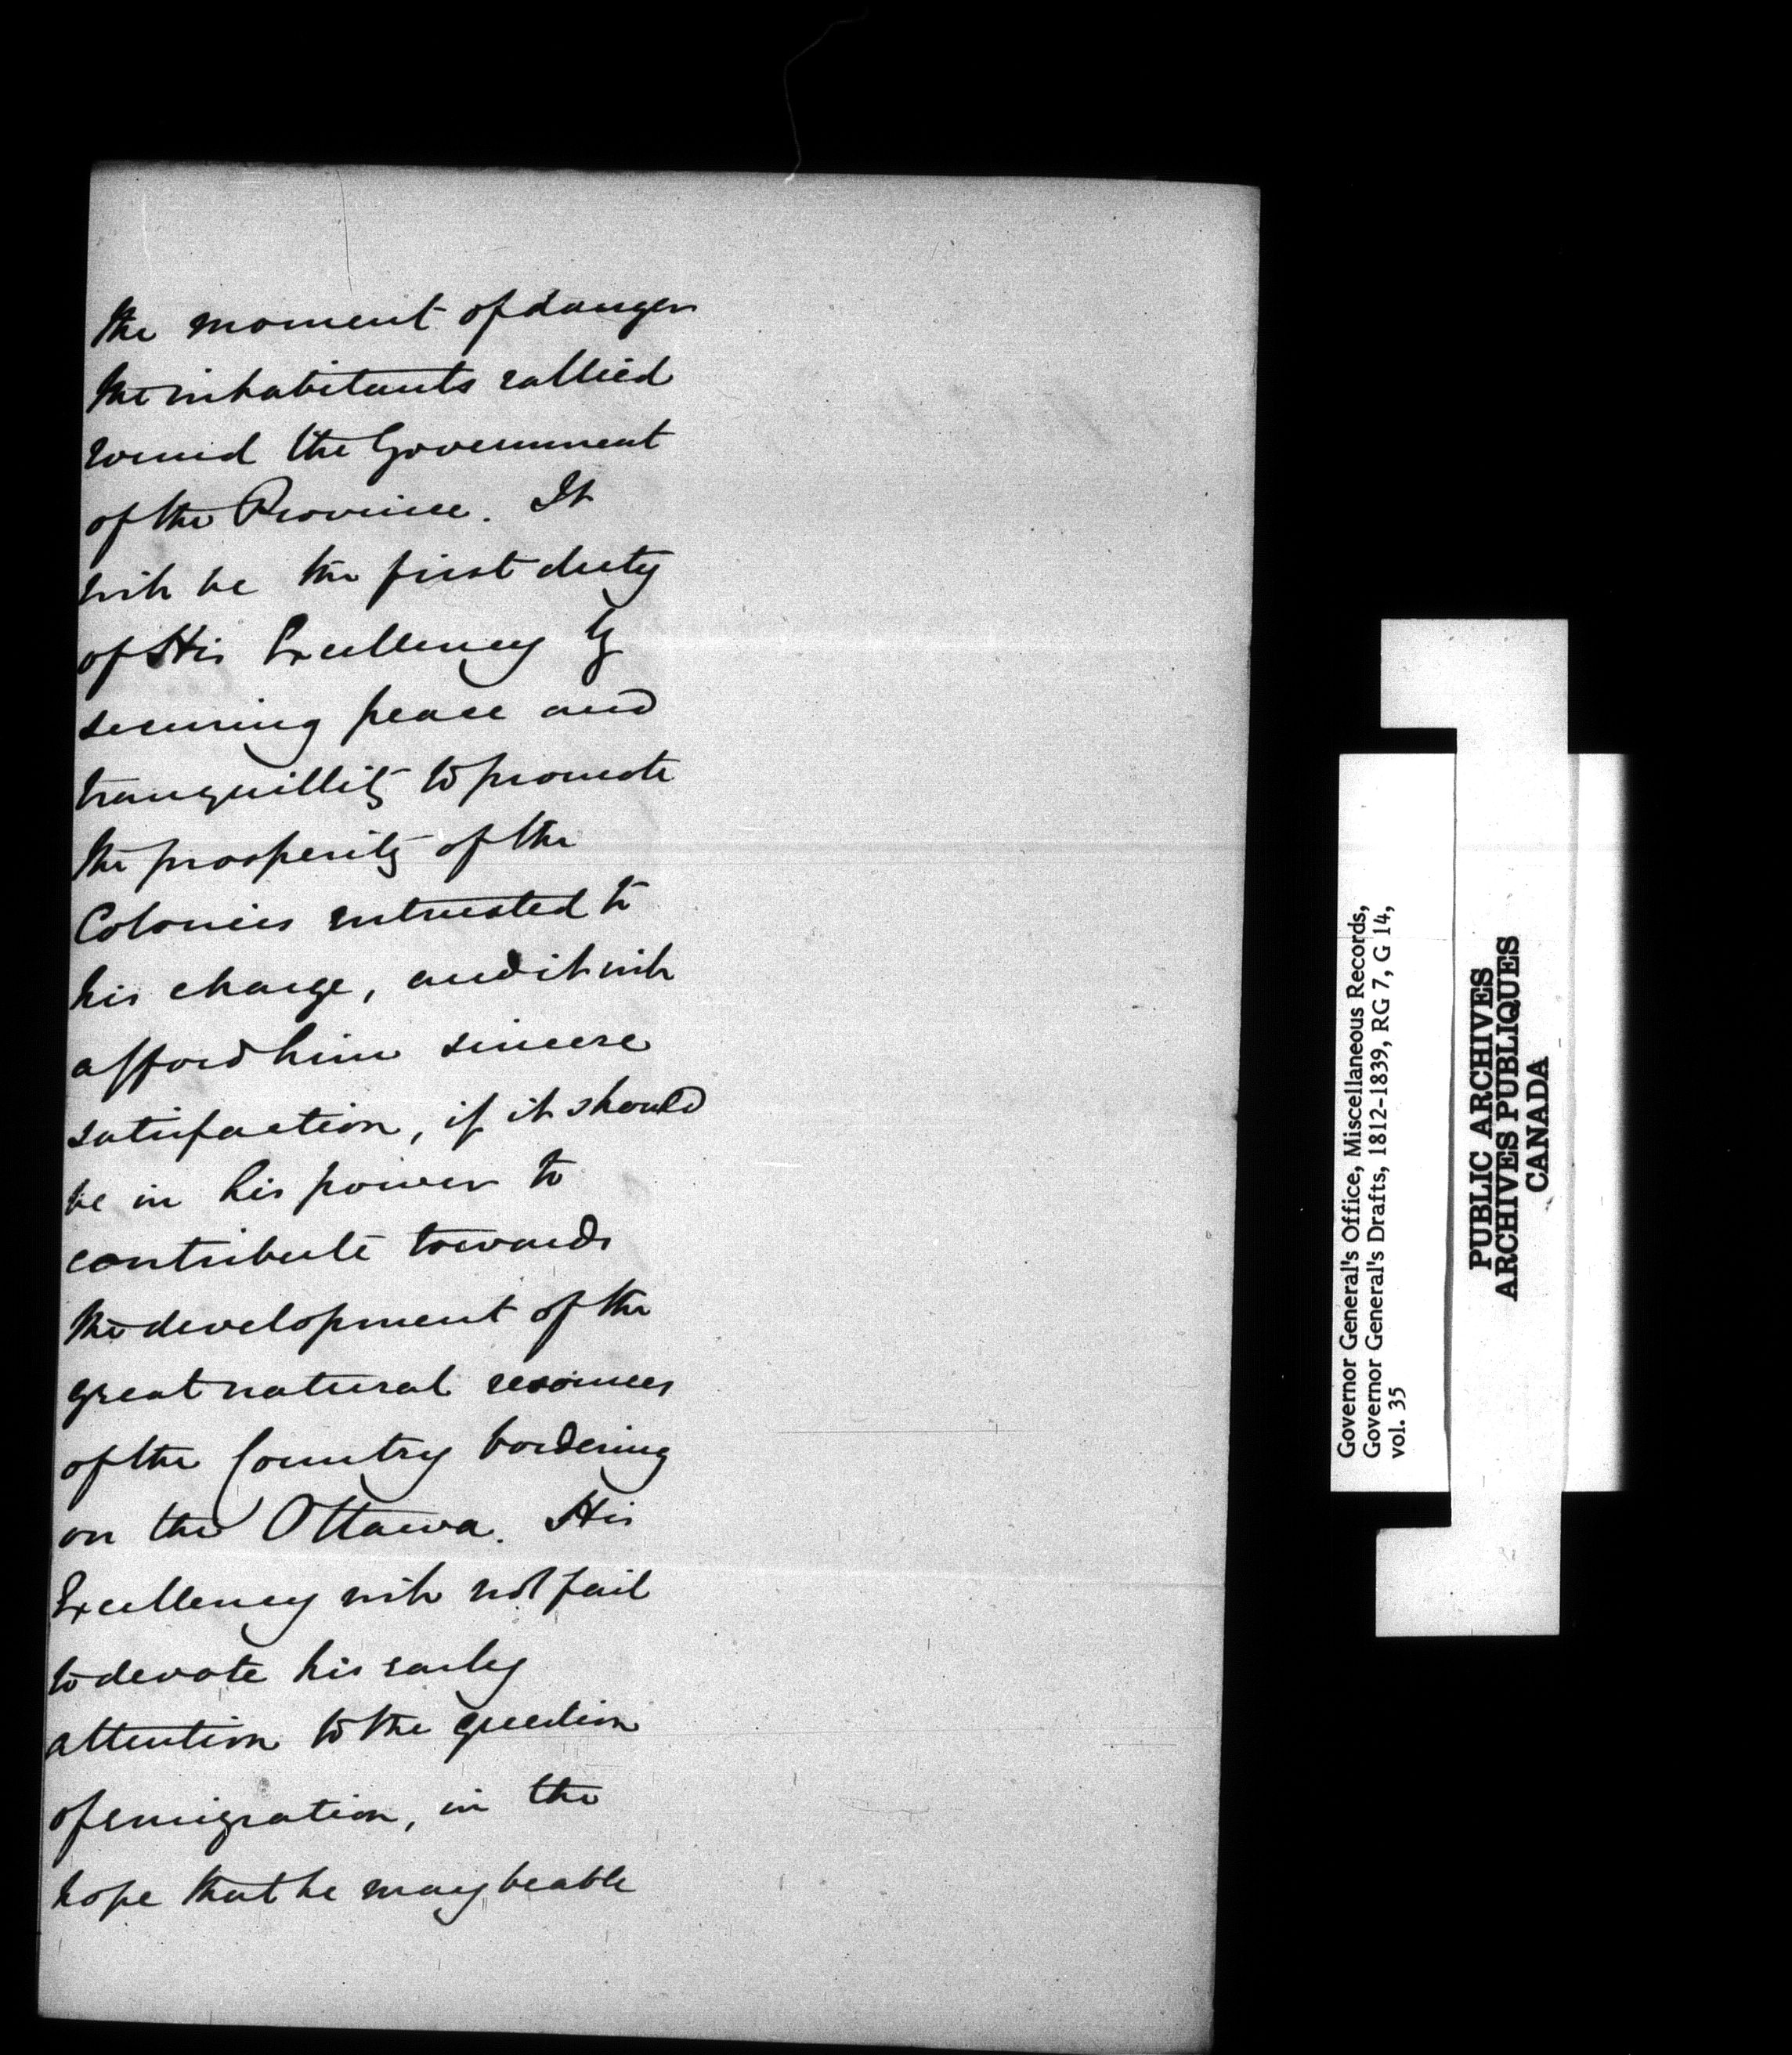 the moment of danger
the inhabitants rallied
round the Government
of the Province. It
will be the first duty
of His Excellency by
securing peace and
tranquillity to promote
the prosperity of the
Colonies entrusted to
his charge, and it will
afford him sincere
satisfaction, if it should
be in his power to
contribute towards
the development of the
great natural resources
of the Country bordering
on the Ottawa. His
Excellency will not fail
to devote his early
attention to the question
of emigration, in the
hope that he may be able
Governor General's Office, Miscellaneous Records,
Governor General's Drafts, 1812-1839, RG 7, G 14,
vol. 35
PUBLIC ARCHIVES
ARCHIVES PUBLIQUES
CANADA